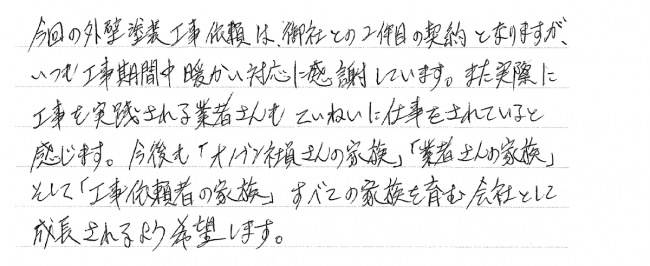 今回の外壁塗装工事依頼は、御社との2件目の契約となりますが、
いつも工事期間中暖かい対応に感謝しています。また実際に
工事を実践される業者さんも ていねいに仕事をされていると
感じます。今後も「オノヅン社員さんの家族」「業者さんの家族」
そして「工事依頼者の家族」すべての家族を育む会社として
成長されるよう希望します。